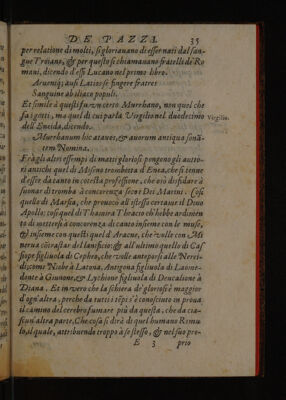 DE PAZZI. 35
per relatione di molti, si gloriauano di esser nati dal san-
gue Troiano, & per questo si chiamauano fratelli de Ro
mani, dicendo d'essi Lucano nel primo libro.
Aruerniq; ausi Latios se fingere fratres
Sanguine ab Iliaco populi.
Et simile à questi fu un certo Murrhano, non quel che
fa i gotti, ma quel di cui parla Vergilio nel duodecimo
dell'Eneida, dicendo.
Virgilio.
Murrhanum hic atauos, & auorum antiqua sonã
tem Nomina.
Frà gli altri essempi di matti gloriosi pongono gli autto
ri antichi quel di Miseno trombetta d'Enea, che si tenne
d'esser da tanto in cotesta professione, che osò disfidare à
suonar di tromba à concorenza fece i Dei Marini. Cosi
quello di Marsia, che prouocò all'istesso certame il Diuo
Apollo; cosi quel di Thamira Thracio ch'hebbe ardimen
to di mettersi à concorenza di canto insieme con le muse,
& insieme con questi quel d'Aracne, che uolle con Mi
nerua cõtrastar del lanificio: & all'ultimo quello di Cas
siope figliuola di Cepheo, che uolle anteporsi alle Nerei-
di; come Niobe à Latona, Antigona figliuola di Laome-
donte à Giunone, & Lychione figliuola di Deucalione à
Diana. Et in uero che la schiera de' gloriosi è maggior
d'ogn'altra, perche da tutti i tẽpi s'è conosciuto in proua
il camino del ceruello fumare più da questa, che da cia-
scun'altra parte. Che cosa si dirà di quel humano Romu
lo, il quale, attribuendo troppo à se stesso, & nel suo pro-
E 3 prio